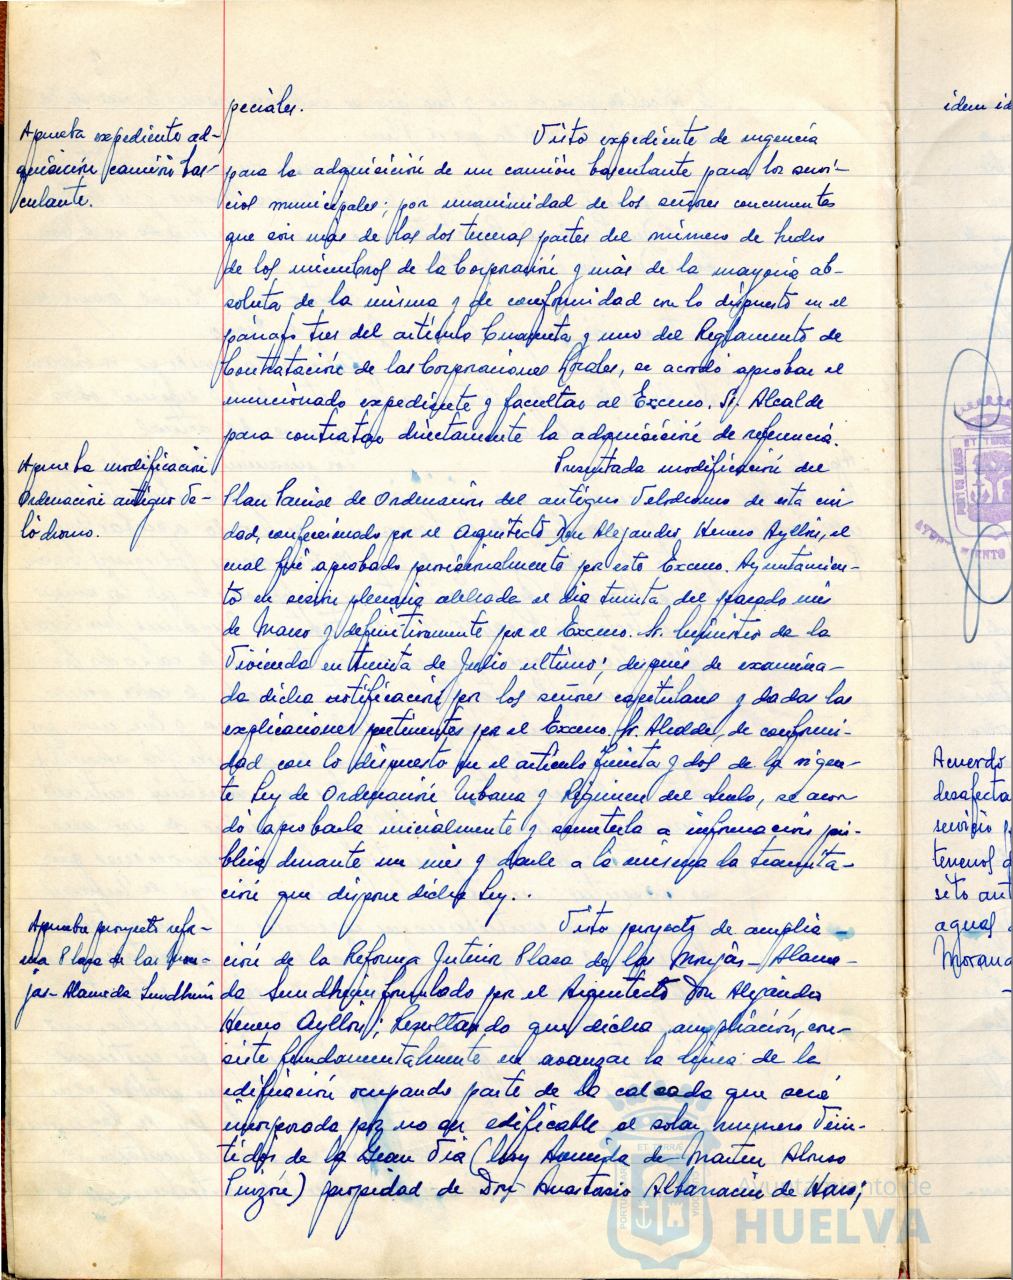 peciales.
Aprueba expediente ad-
quisición camión bas-
culante.
Visto expediente de urgencia
para la adquisición de un camión basculante para los servi-
cios municipales; por unanimidad de los señores concurrentes
que son más de las dos terceras partes del número de hecho
de los miembros de la Corporación y más de la mayoría ab-
soluta de la misma y de conformidad con lo dispuesto en el
párrafo tres del artículo Cuarenta y uno del Reglamento de
Contratación de las Corporaciones Locales, se acordó aprobar el
mencionado expediente y facultar al Excmo. Sr. Alcalde
para contratar directamente la adquisición de referencia.
Aprueba modificación
Ordenación antiguo Ve-
lódromo.
Presentada modificación del
Plan Parcial de Ordenación del antiguo Velódromo de esta ciu
dad, confeccionado por el Arquitecto Don Alejandro Herrero Ayllón, el
cual fué aprobado provisionalmente por este Excmo. Ayuntamien-
to en sesión plenaria celebrada el día treinta del pasado mes
de Marzo y definitivamente por el Excmo. Sr. Ministro de la
Vivienda en treinta de Julio último; después de examina-
da dicha notificación por los señores capitulares y dadas las
explicaciones pertinentes por el Excmo. Sr. Alcalde, de conformi-
dad con lo dispuesto en el artículo treinta y dos de la vigen-
te Ley de Ordenación Urbana y Régimen del Suelo, se acor
dó aprobarla inicialmente y someterla a información pú-
blica durante un mes y darle a la misma la tramita-
ción que dispone dicha Ley.
Aprueba proyecto refor-
ma Plaza de las Mon-
jas-Alameda Sundheim
Visto proyecto de amplia-
ción de la Reforma Interior Plaza de las Monjas-Alame-
da Sundheim formulado por el Arquitecto Don Alejandro
Herrero Ayllón; Resultando que dicha ampliación, con-
siste fundamentalmente en avanzar la línea de la
edificación ocupando parte de la calzada que será
incorporada por no ser edificable al solar número Vein-
tidos de la Gran Vía (hoy Avenida de Martín Alonso
Pinzón) propiedad de Don Anastasio Albarracín de Haro;
idem id
Acuerdo
desafecta
servicio p
terrenos d
sito ant
aguas
Morana
Ayuntamiento de
HUELVA